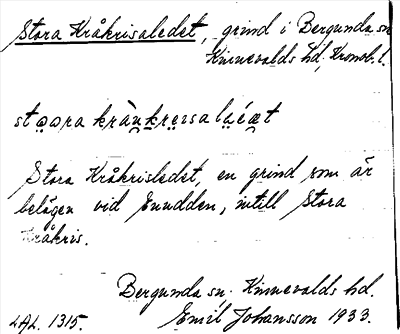 Stora Kråkrisaledet, grind i Bergunda sn
Kinnevalds hd, Kronob. l.
Stora Kråkrisledet, en grind som är
belägen vid Enudden, intill Stora
Kråkris.
Bergunda sn. Kinnevalds hd.
LAL. 1315. Emil Johansson 1933.